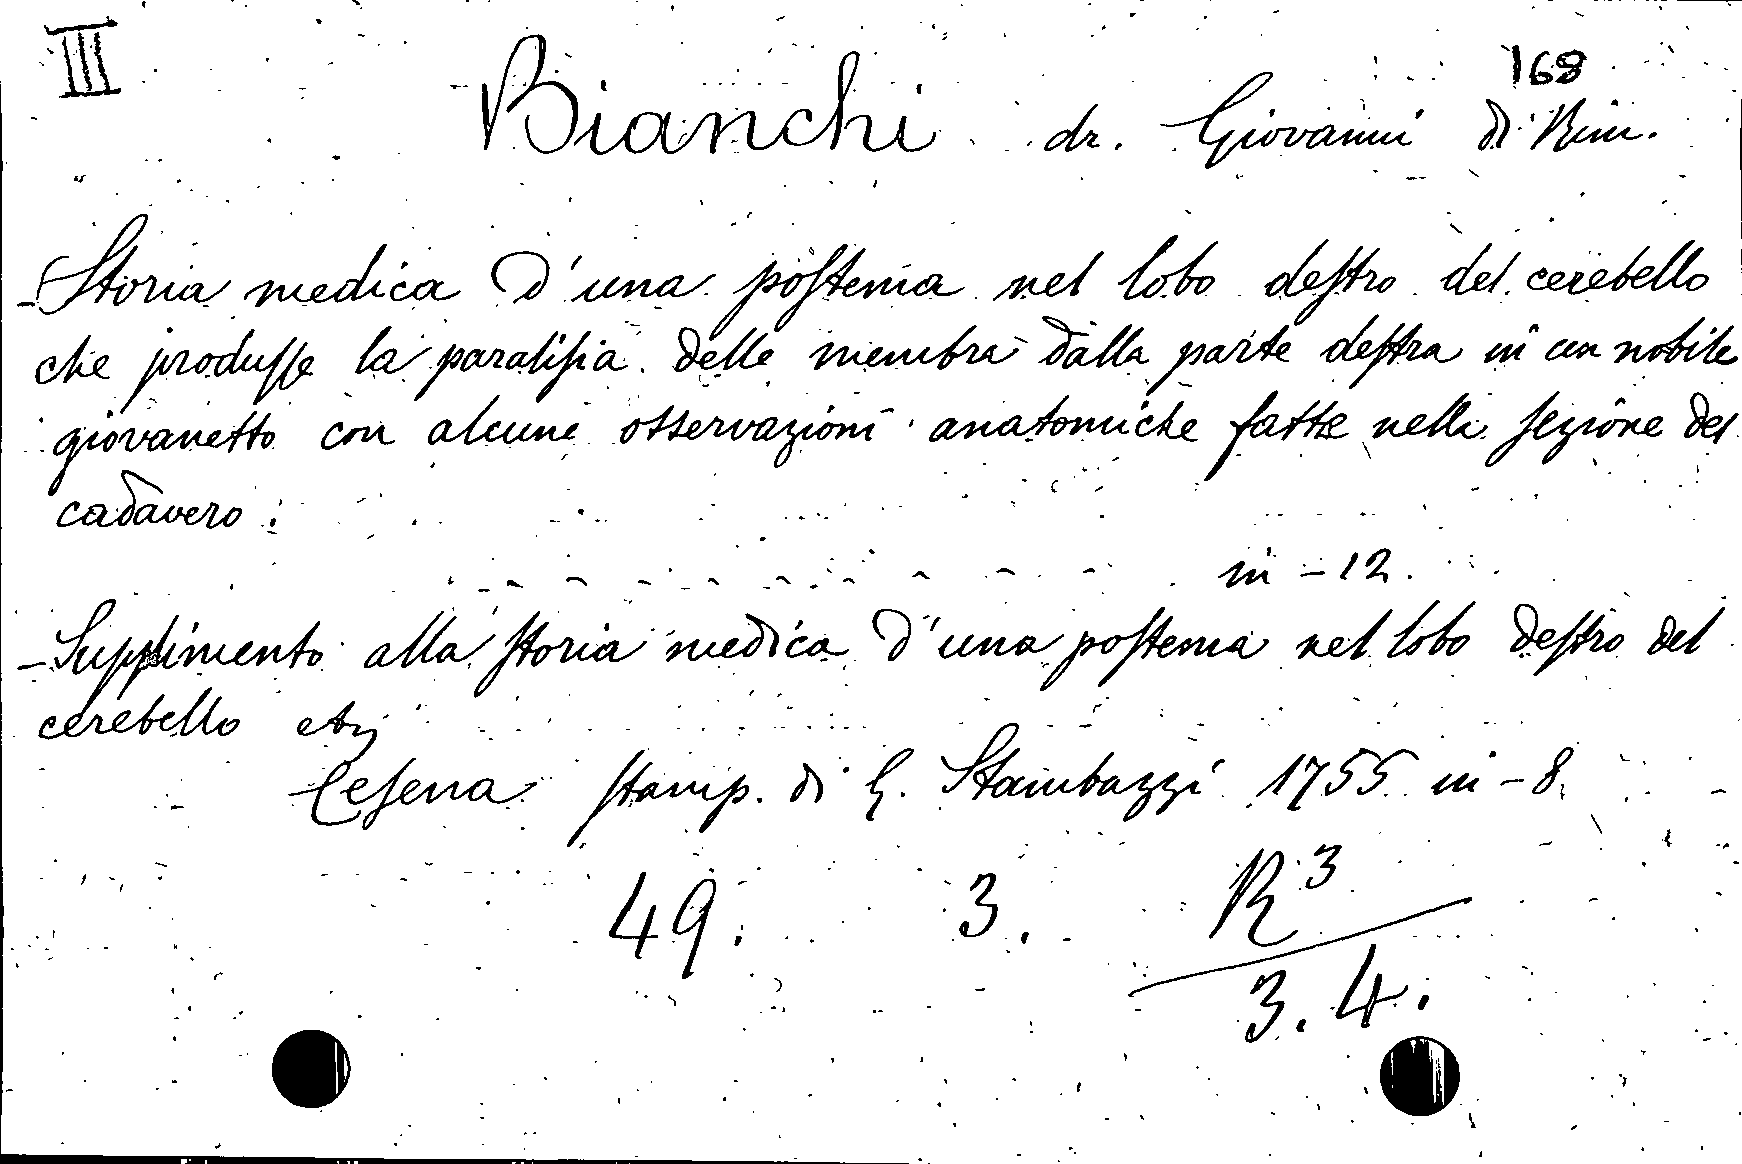 III
168
Bianchi dr. Giovanni di Rim.
- Storia medica d'una poſtema nel lobo deſtro del cerebello
che produſſe la paraliſia delle membra dalla parte deſtra in un nobile
giovanetto con alcune osservazioni anatomiche fatte nella ſezione del
cadavero.
in - 12.
- Supplimento alla ſtoria medica d'una poſtema nel lobo deſtro del
cerebello etc
Ceſena ſtamp. di G. Stambazzi 1755 in - 8.
49. 3. R 3
3.4.